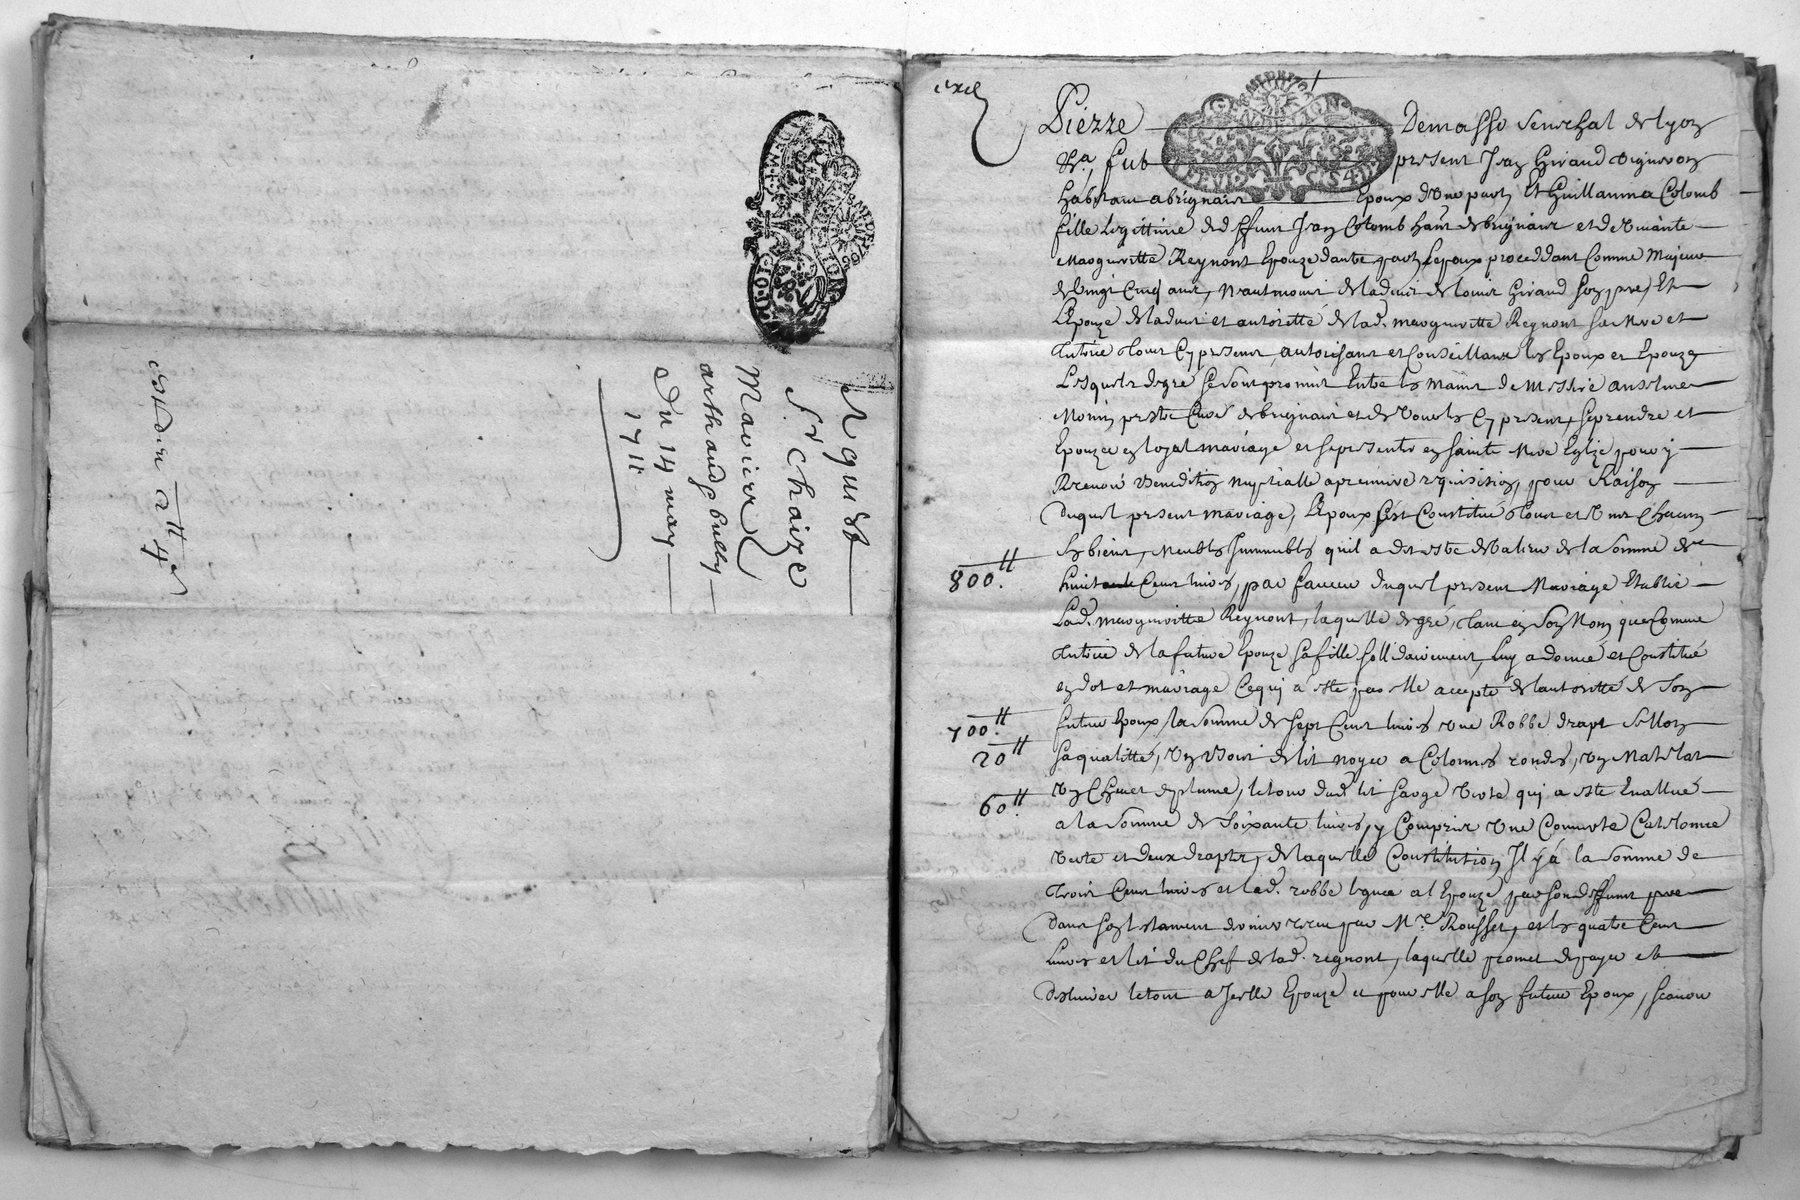 Aquist
Sr chaize
Mariage
arthaud pully
Du 14 may
1711
Pierre Demasso senechal de lyon
fut present Jean Giraud vigneron
habitant a brignais Epoux d'Une part, Et Guillauma Colomb
fille Legittime de deffunt Jean Colomb hant de brignais et de Vivante
Margueritte Reynont Epouze dautre part, Lepoux proceddant Comme Majeur
de Vingt Cinq ans, Neautmoins de ladvis de Giraud son pere, Et
L'Epouze de ladvis et autoritté de lad. margueritte Reynont sa Mere et
tutrice tous Cy presents, autorisant et Conseillant les Epoux et Epouze
Lesquels de gre se sont promis Entre les mains de Messire anselme
Monin prestre Curé de brignais et de Vourles Cy present, se prendre et
Epouzer en loyal mariage et se presenter en sainte Mere Eglize pour y
Recevoir Benediction Nuptialle a premiere requisition, pour Raison
Duquel present Mariage, L'Epoux s'est Constitué tous et Uns Chacuns
Ses biens, Meubles Immeubles qu'il a dit estre de Valleur de la Somme de
800.# huit Cent livres, par faveur duquel present Mariage Etablie
Lad. margueritte Reynont, laquelle de gré, tant en son Nom que Comme
tutrice de la future Epouze sa fille sollidairement, luy a donné et Constitué
en dot et mariage Ce qui a esté par elle accepté de lautoritté de Son
700.# futur Epoux, la Somme de sept Cent livres Une Robbe drapt sellon
20# sa qualitté, Un Bois de lit noyer a Colonnes rondes, Un Matelat
60.# Un Chevet de plume, le tour dud. lit sarge Verte qui a esté Evallué
a la Somme de Soixante livres, y Compris Une Couverte Catelonne
Verte et deux drapts, de laquelle Constitution Il y a la Somme de
trois Cent livres et lad. robbe leguée a l'Epouze par son deffunt pere
Dans son testament dernier receu par Me. Rousset, et les quatre Cent
Livres et lit du Chef de lad. regnont, laquelle promet de payer et
deslivrer le tout a Jcelle Epouze et pour elle a son futur Epoux, scavoir